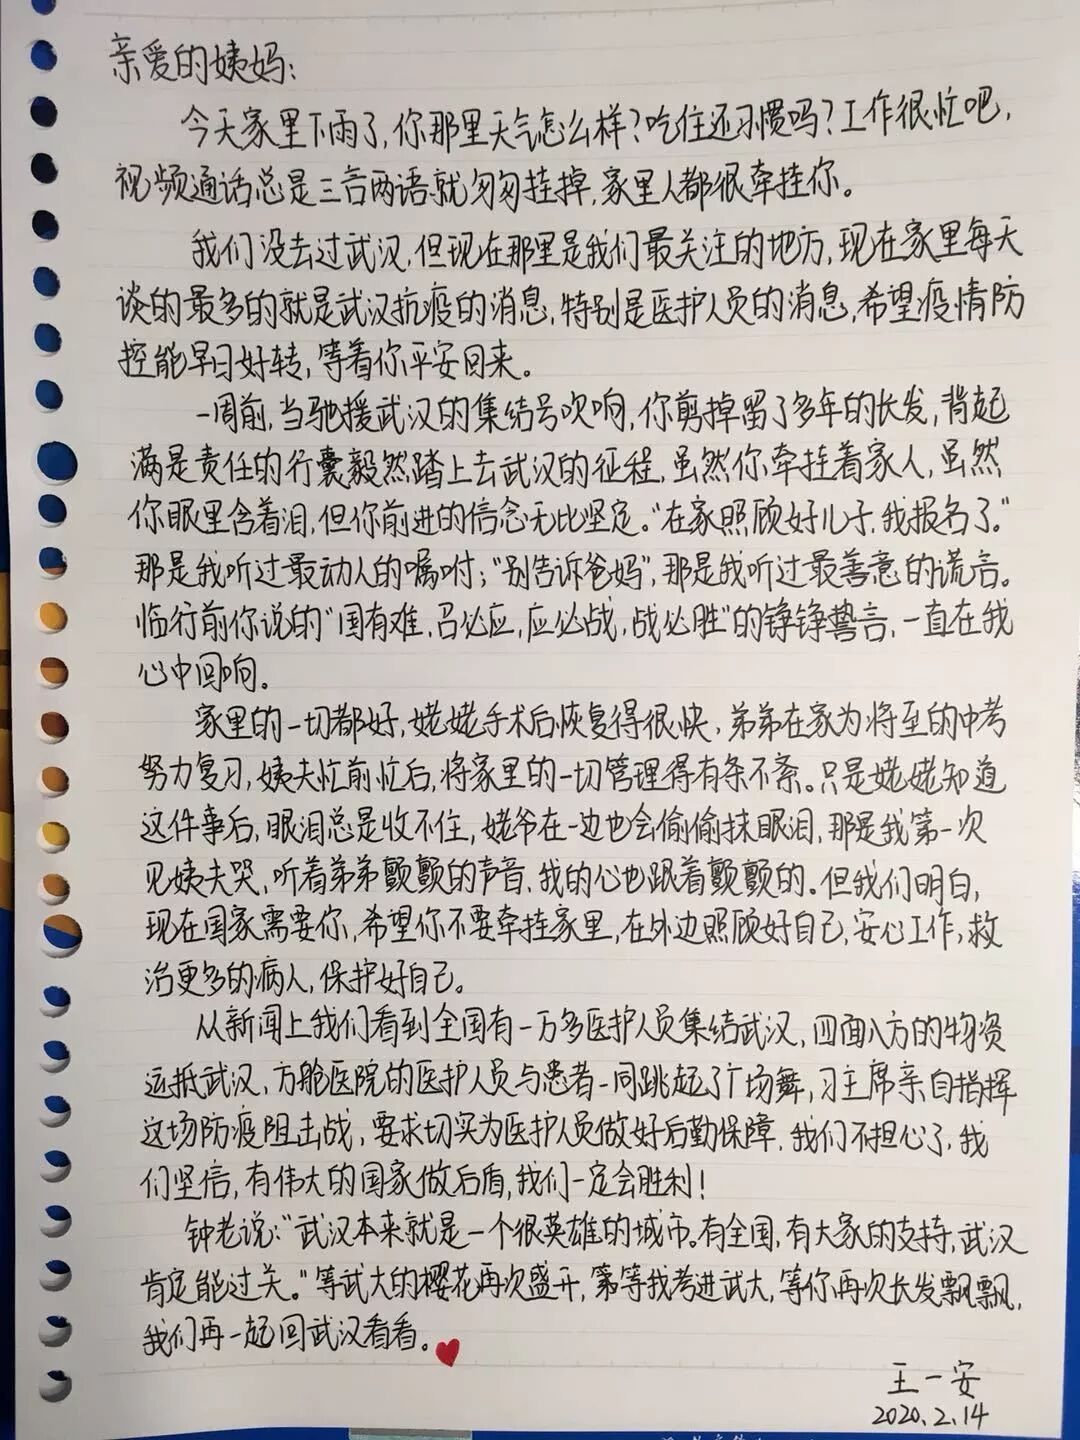 亲爱的姨妈：
今天家里下雨了，你那里天气怎么样？吃住还习惯吗？工作很忙吧，
视频通话总是三言两语就匆匆挂掉，家里人都很牵挂你。
我们没去过武汉，但现在那里是我们最关注的地方，现在家里每天
谈的最多的就是武汉抗疫的消息，特别是医护人员的消息，希望疫情防
控能早日好转，等着你平安回来。
一周前，当驰援武汉的集结号吹响，你剪掉留了多年的长发，背起
满是责任的行囊毅然踏上去武汉的征程，虽然你牵挂着家人，虽然
你眼里含着泪，但你前进的信念无比坚定。“在家照顾好儿子，我报名了。”
那是我听过最动人的嘱咐；“别告诉爸妈”，那是我听过最善意的谎言。
临行前你说的“国有难，召必应，应必战，战必胜”的铮铮誓言，一直在我
心中回响。
家里的一切都好，姥姥手术后恢复得很快，弟弟在家为将至的中考
努力复习，姨夫忙前忙后，将家里的一切管理得有条不紊。只是姥姥知道
这件事后，眼泪总是收不住，姥爷在一边也会偷偷抹眼泪，那是我第一次
见姨夫哭，听着弟弟颤颤的声音，我的心也跟着颤颤的。但我们明白，
现在国家需要你，希望你不要牵挂家里，在外边照顾好自己，安心工作，救
治更多的病人，保护好自己。
从新闻上我们看到全国有一万多医护人员集结武汉，四面八方的物资
运抵武汉，方舱医院的医护人员与患者一同跳起了广场舞，习主席亲自指挥
这场防疫阻击战，要求切实为医护人员做好后勤保障，我们不担心了，我
们坚信，有伟大的国家做后盾，我们一定会胜利！
钟老说：“武汉本来就是一个很英雄的城市。有全国，有大家的支持，武汉
肯定能过关。”等武大的樱花再次盛开，等我考进武大，等你再次长发飘飘，
我们再一起回武汉看看。
王一安
2020.2.14